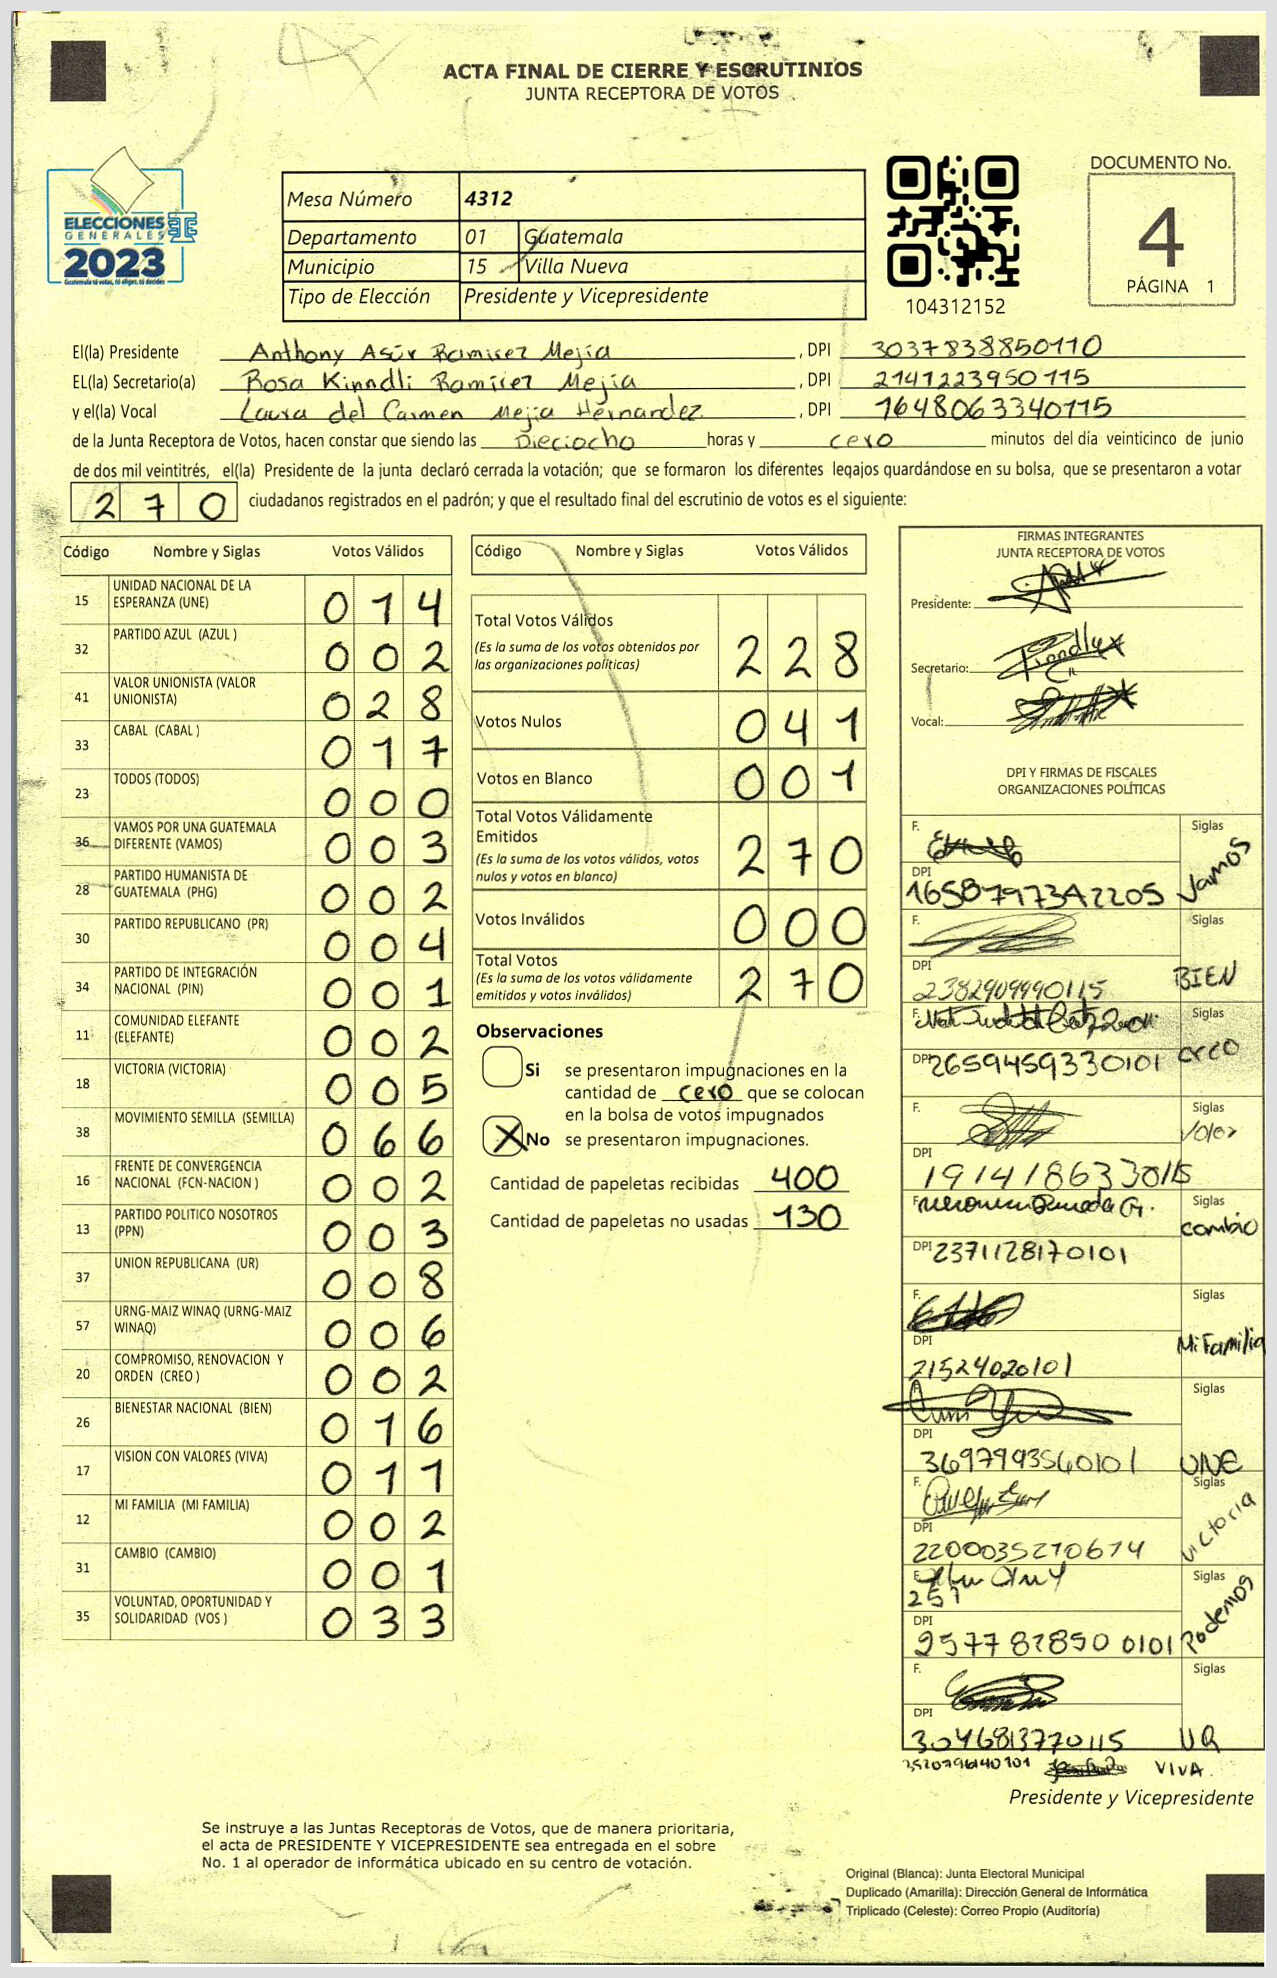 ACTA FINAL DE CIERRE Y ESCRUTINIOS
JUNTA RECEPTORA DE VOTOS
ELECCIONES
GENERALES
2023
Guatemala tú votas, tú eliges, tú decides
Mesa Número 4312
Departamento 01 Guatemala
Municipio 15 Villa Nueva
Tipo de Elección Presidente y Vicepresidente
104312152
DOCUMENTO No.
4
PÁGINA 1
El(la) Presidente Anthony Asúr Ramirez Mejía, DPI 3037838850110
EL(la) Secretario(a) Rosa Kinndli Ramirez Mejía, DPI 2141223950115
y el(la) Vocal Laura del Carmen Mejia Hernandez, DPI 1648063340115
de la Junta Receptora de Votos, hacen constar que siendo las Dieciocho horas y cero minutos del día veinticinco de junio
de dos mil veintitrés, el(la) Presidente de la junta declaró cerrada la votación; que se formaron los diferentes legajos guardándose en su bolsa, que se presentaron a votar
270 ciudadanos registrados en el padrón; y que el resultado final del escrutinio de votos es el siguiente:
Código Nombre y Siglas Votos Válidos
15 UNIDAD NACIONAL DE LA ESPERANZA (UNE) 014
32 PARTIDO AZUL (AZUL ) 002
41 VALOR UNIONISTA (VALOR UNIONISTA) 028
33 CABAL (CABAL ) 017
23 TODOS (TODOS) 000
36 VAMOS POR UNA GUATEMALA DIFERENTE (VAMOS) 003
28 PARTIDO HUMANISTA DE GUATEMALA (PHG) 002
30 PARTIDO REPUBLICANO (PR) 004
34 PARTIDO DE INTEGRACIÓN NACIONAL (PIN) 001
11 COMUNIDAD ELEFANTE (ELEFANTE) 002
18 VICTORIA (VICTORIA) 005
38 MOVIMIENTO SEMILLA (SEMILLA) 066
16 FRENTE DE CONVERGENCIA NACIONAL (FCN-NACION ) 002
13 PARTIDO POLITICO NOSOTROS (PPN) 003
37 UNION REPUBLICANA (UR) 008
57 URNG-MAIZ WINAQ (URNG-MAIZ WINAQ) 006
20 COMPROMISO, RENOVACION Y ORDEN (CREO ) 002
26 BIENESTAR NACIONAL (BIEN) 016
17 VISION CON VALORES (VIVA) 011
12 MI FAMILIA (MI FAMILIA) 002
31 CAMBIO (CAMBIO) 001
35 VOLUNTAD, OPORTUNIDAD Y SOLIDARIDAD (VOS ) 033
Código Nombre y Siglas Votos Válidos
Total Votos Válidos
(Es la suma de los votos obtenidos por las organizaciones políticas) 228
Votos Nulos 041
Votos en Blanco 001
Total Votos Válidamente Emitidos
(Es la suma de los votos válidos, votos nulos y votos en blanco) 270
Votos Inválidos 000
Total Votos
(Es la suma de los votos válidamente emitidos y votos inválidos) 270
Observaciones
Si se presentaron impugnaciones en la
cantidad de cero que se colocan
en la bolsa de votos impugnados
X No se presentaron impugnaciones.
Cantidad de papeletas recibidas 400
Cantidad de papeletas no usadas 130
FIRMAS INTEGRANTES
JUNTA RECEPTORA DE VOTOS
Presidente:
Secretario:
Vocal:
DPI Y FIRMAS DE FISCALES
ORGANIZACIONES POLÍTICAS
F. Siglas Vamos
DPI
F. Siglas BIEN
DPI 2382909990115
F. Siglas creo
DPI 2659459330101
F. Siglas
DPI 1914186330115
F. Siglas cambio
DPI 2371128170101
F. Siglas Mi Familia
DPI 21524020101
F. Siglas UNE
DPI 3697993560101
F. Siglas victoria
DPI 2200035270614
F. Siglas Podemos
257
DPI 2577828500101
F. Siglas UR
DPI 3046813770115
3520796140101 VIVA
Presidente y Vicepresidente
Se instruye a las Juntas Receptoras de Votos, que de manera prioritaria,
el acta de PRESIDENTE Y VICEPRESIDENTE sea entregada en el sobre
No. 1 al operador de informática ubicado en su centro de votación.
Original (Blanca): Junta Electoral Municipal
Duplicado (Amarilla): Dirección General de Informática
Triplicado (Celeste): Correo Propio (Auditoría)